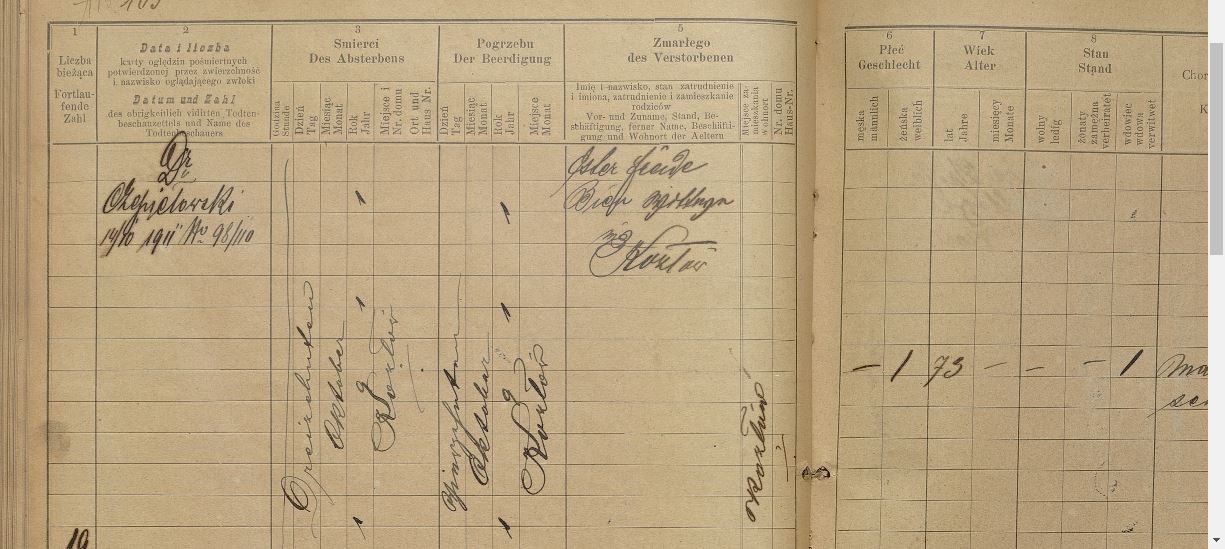 1
2
3
5
Liczba
bieżąca
Fortlau-
fende
Zahl
Data i liczba
karty oględzin pośmiertnych
potwierdzonej przez zwierzchność
i nazwisko oglądającego zwłoki
Datum und Zahl
des obrigkeitlich vidirten Todten-
beschauzettels und Name des
Todtenbeschauers
Śmierci
Des Absterbens
Godzina
Stunde
Dzień
Tag
Miesiąc
Monat
Rok
Jahr
Miejsce i
Nr. domu
Ort und
Haus Nr.
Pogrzebu
Der Beerdigung
Dzień
Tag
Miesiąc
Monat
Rok
Jahr
Miejsce
Monat
Zmarłego
des Verstorbenen
Imię i nazwisko, stan zatrudnienie
i imiona, zatrudnienie i zamieszkanie
rodziców
Vor- und Zuname, Stand, Be-
schäftigung, ferner Name, Beschäfti-
gung und Wohnort der Aeltern
Miejsce za-
mieszkania
Wohnort
Nr. domu
Haus-Nr.
6
7
8
Płeć
Geschlecht
męska
männlich
żeńska
weiblich
Wiek
Alter
lat
Jahre
miesięcy
Monate
Stan
Stand
wolny
ledig
żonaty
zamężna
verheiratet
wdowiec
wdowa
verwitwet
Dr
1911 No 98/110
Dreizehnten
Oktober
1
1
9
1
Kozłów
Oktober
1
1
9
1
Kozłów
Ester
in Kozłów
Kozłów
— 1 73 — — — 1
19